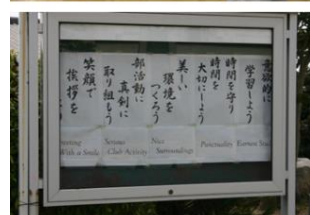 意欲的に
学習しよう
時間を守り
大切にしよう
美しい
環境を
つくろう
部活動に
真剣に
取り組もう
笑顔で
挨拶を
With a Smile
Serious
Club Activity
Nice
Surroundings
Punctuality
Earnest